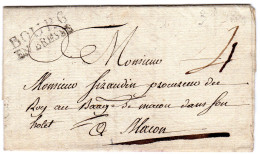 BOURG
EN BRESSE
4
Monsieur
Monsieur sirandin procureur du
Roy au Baage de macon dans son
hotel
A Macon